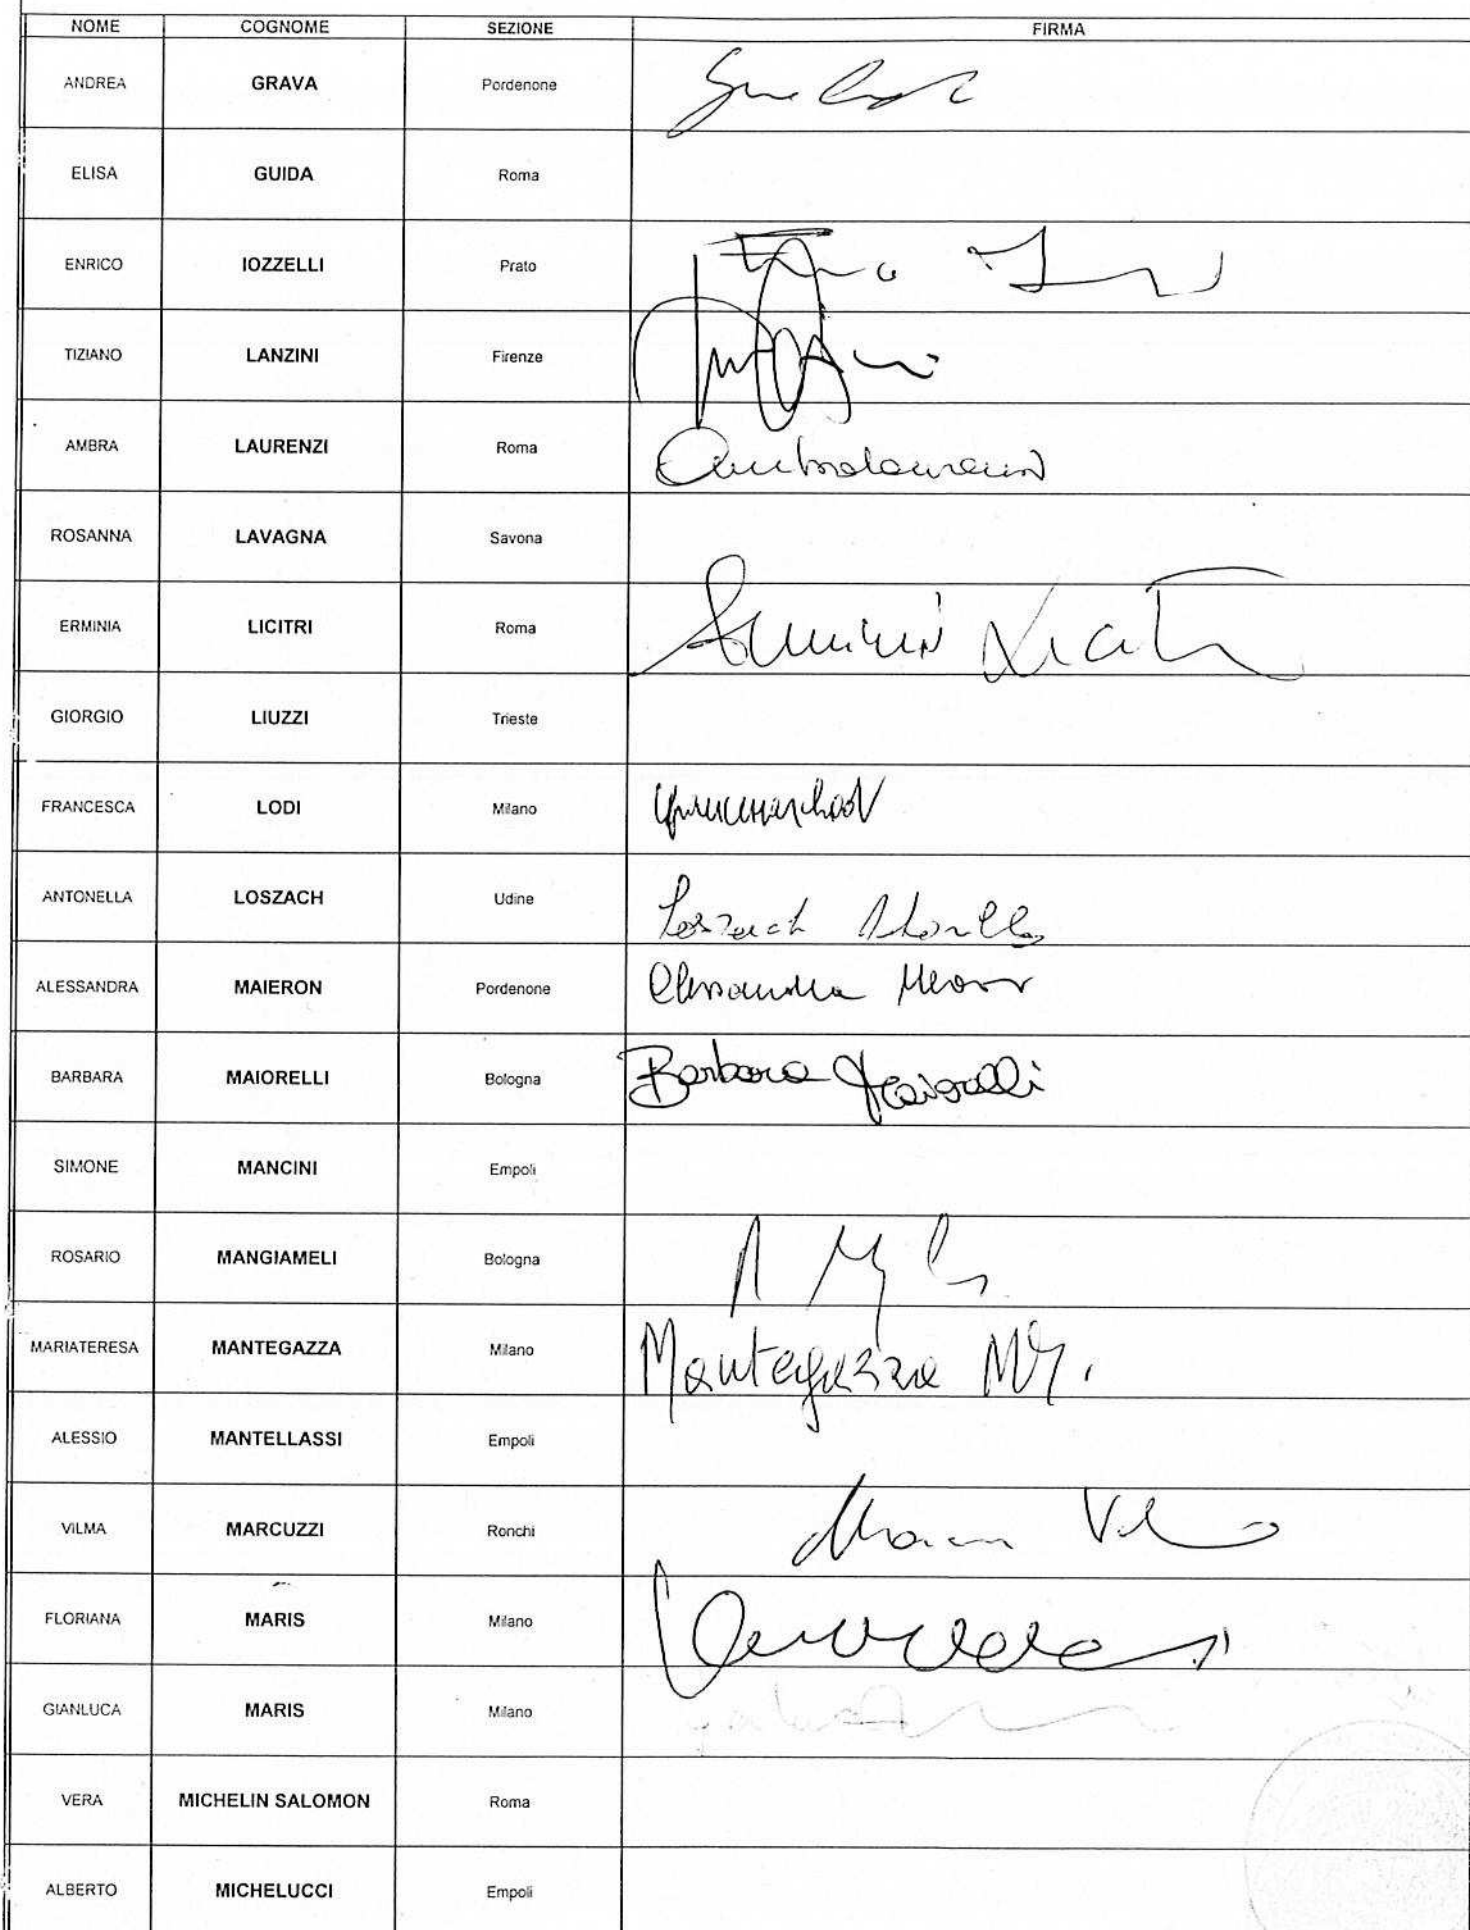 NOME COGNOME SEZIONE FIRMA
ANDREA GRAVA Pordenone
ELISA GUIDA Roma
ENRICO IOZZELLI Prato
TIZIANO LANZINI Firenze
AMBRA LAURENZI Roma Ambra Laurenzi
ROSANNA LAVAGNA Savona
ERMINIA LICITRI Roma Erminia
GIORGIO LIUZZI Trieste
FRANCESCA LODI Milano
ANTONELLA LOSZACH Udine Loszach
ALESSANDRA MAIERON Pordenone Alessandra
BARBARA MAIORELLI Bologna Barbara Maiorelli
SIMONE MANCINI Empoli
ROSARIO MANGIAMELI Bologna
MARIATERESA MANTEGAZZA Milano Mantegazza MT.
ALESSIO MANTELLASSI Empoli
VILMA MARCUZZI Ronchi
FLORIANA MARIS Milano
GIANLUCA MARIS Milano
VERA MICHELIN SALOMON Roma
ALBERTO MICHELUCCI Empoli